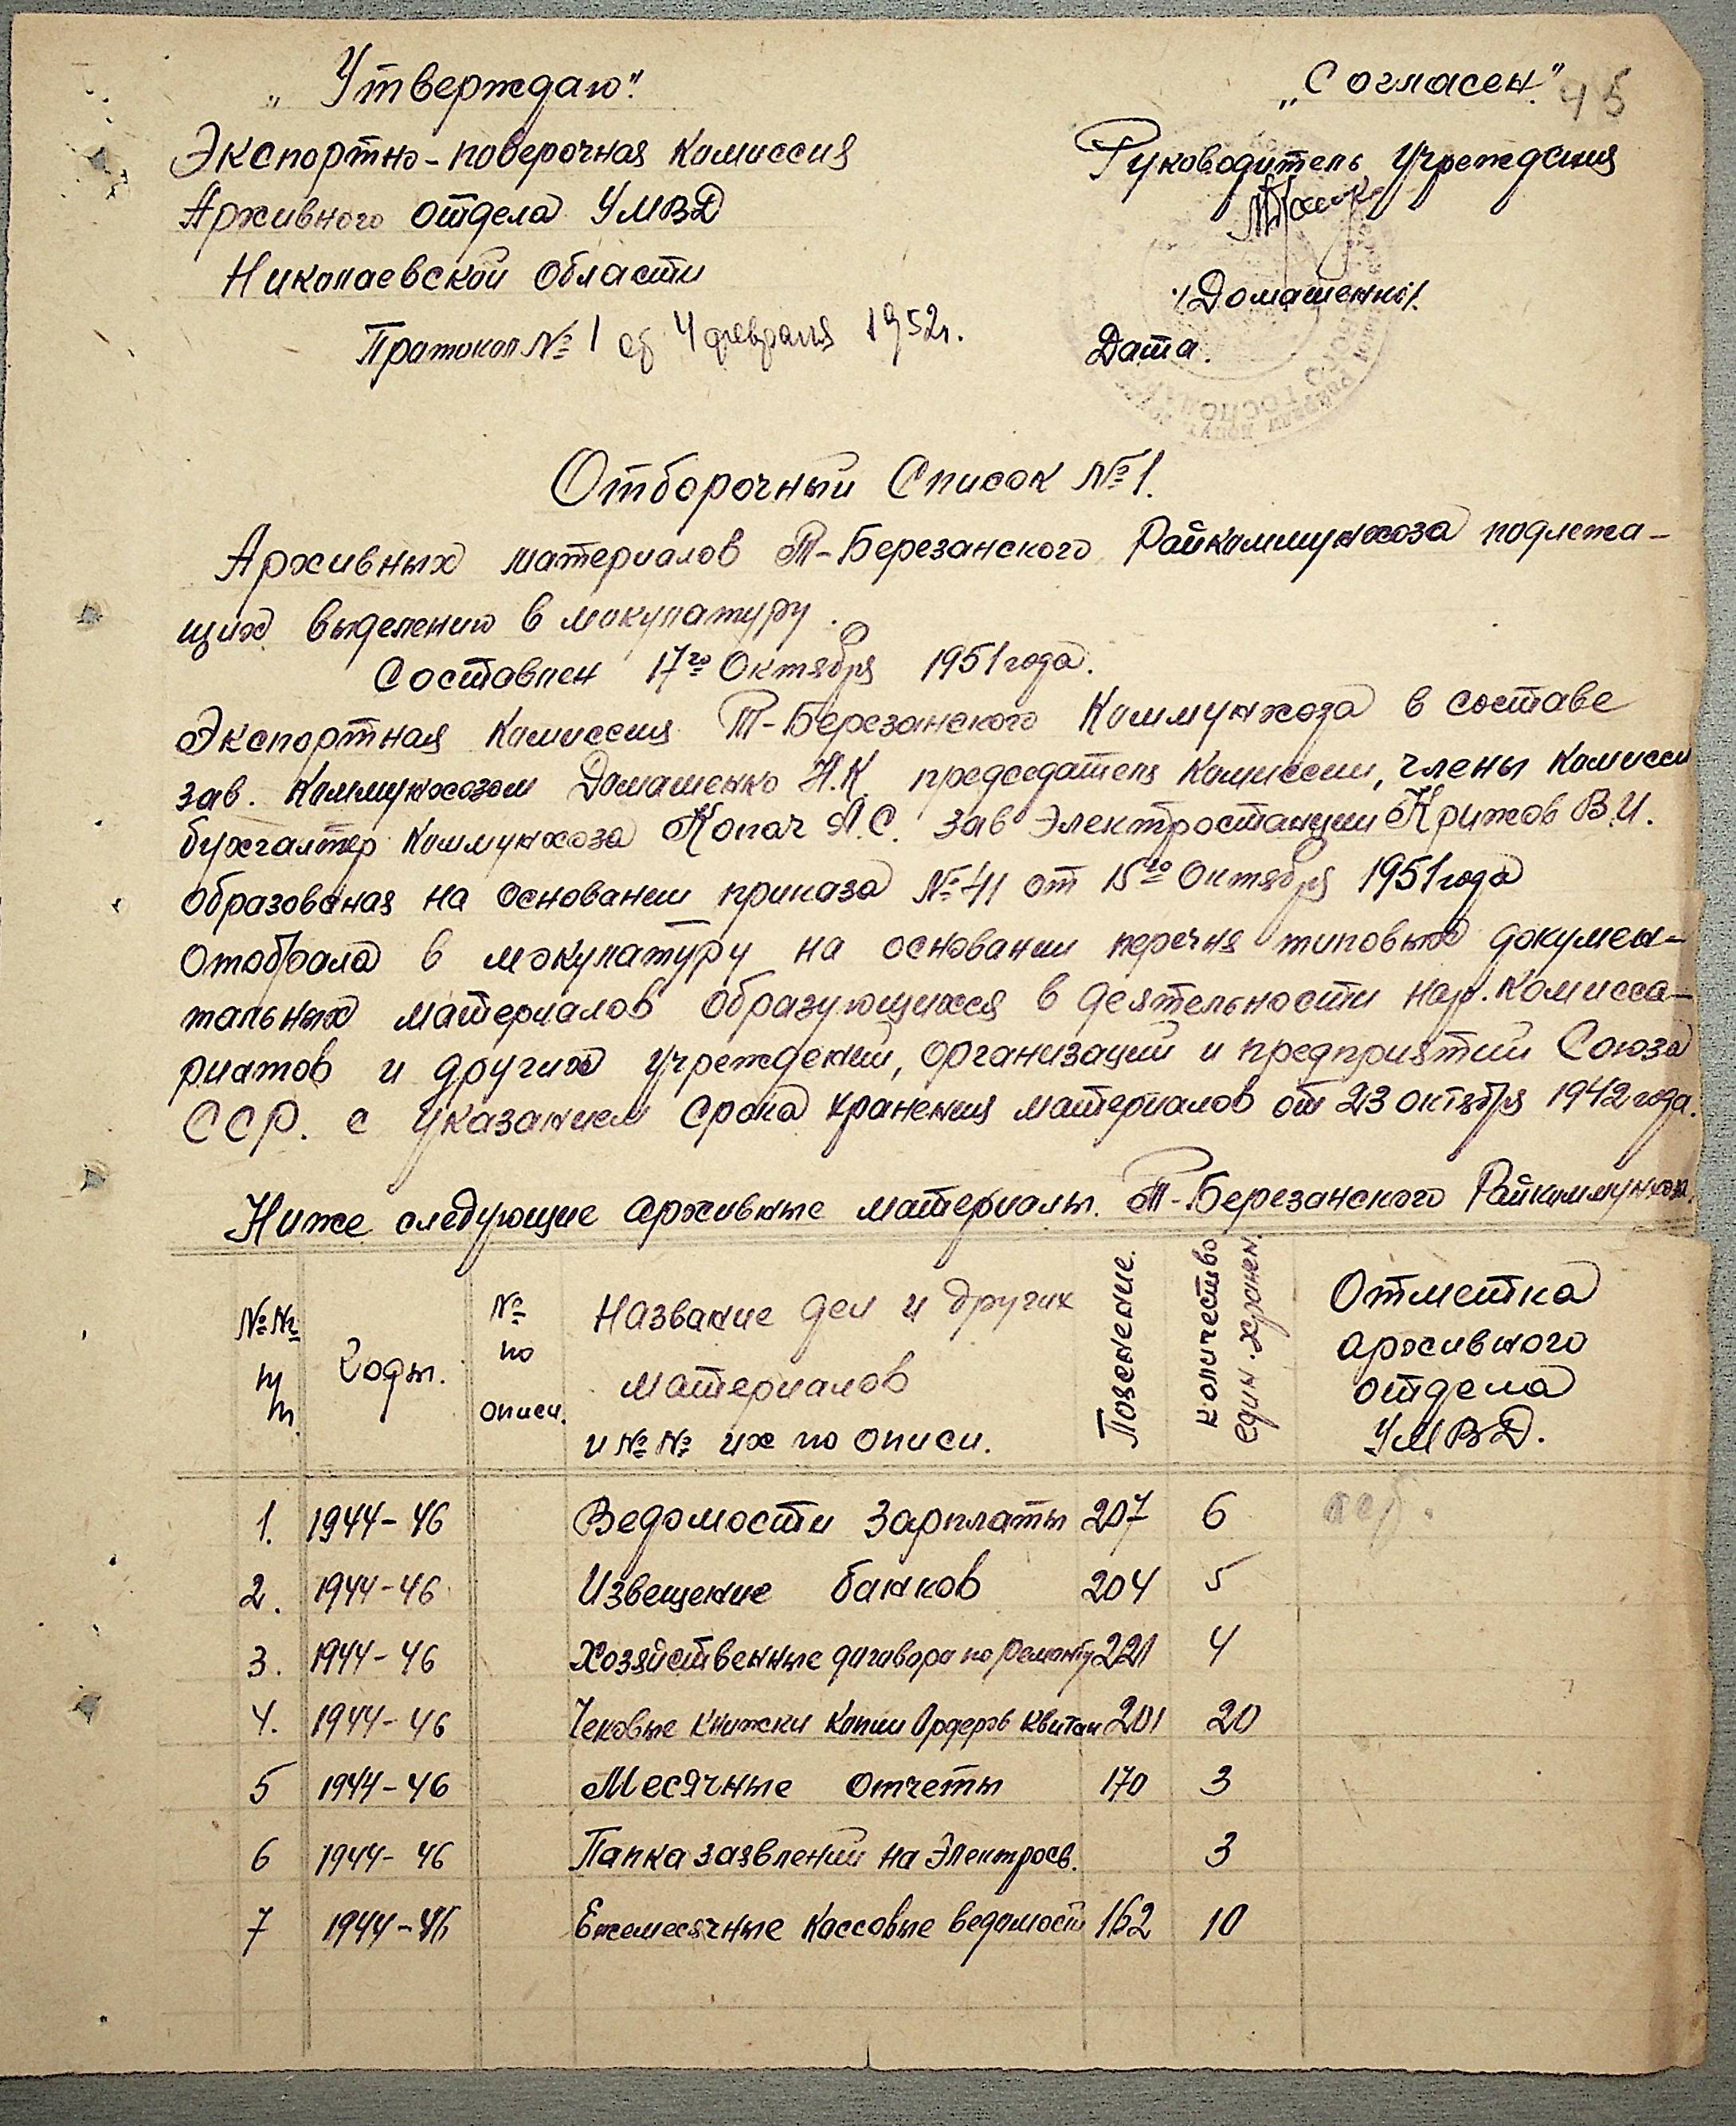 „Утверждаю".
„Согласен".
45
Экспортно-поверочная Комиссия
Руководитель Учреждения
Архивного отдела УМВД
Николаевской области
/Домашенко/.
Протокол № 1 4 февраля 1952г.
Дата.
Отборочный Список №1.
Архивных материалов Т-Березанского Райкоммунхоза подлежа-
щих выделению в макулатуру.
Составлен 17го Октября 1951 года.
Экспортная Комиссия Т-Березанского Коммунхоза в составе
зав. Коммунхозом Домашенко Н.К. председатель Комиссии, члены Комисси
бухгалтер Коммунхоза Копач А.С. Зав Электростанции Крижов В.И.
образованая на основании приказа № 41 от 15го Октября 1951 года
Отобрала в макулатуру на основании перечня типовых докумен-
тальных материалов образующихся в деятельности нар. Комисса-
риатов и других учреждений, организаций и предприятий Союза
ССР. с указанием срока хранения материалов от 23 октября 1942 года.
Ниже следующие архивные материалы. Т-Березанского Райкоммунхоза.
№№ пп Годы. № по описи. Название дел и других материалов и №№ их по описи. Пояснение. Количество един. хранен. Отметка архивного отдела УМВД.
1. 1944-46 Ведомости Зарплаты 207 6
2. 1944-46 Извещение банков 204 5
3. 1944-46 Хозяйственные договора по Ремонту 221 4
4. 1944-46 Чековые книжки копии Ордеров квитан 201 20
5 1944-46 Месячные отчеты 170 3
6 1944-46 Папка заявлений на Электросв. 3
7 1944-46 Ежемесячные Кассовые ведомости 162 10